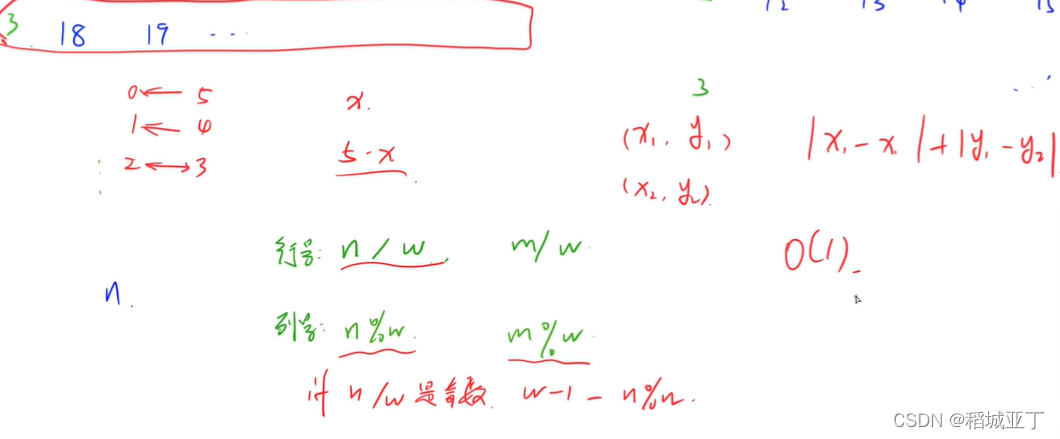 12 13 14 15
3 18 19 ...
0 ← 5
1 ← 4
2 ↔ 3
x.
5-x
3
(x1, y1)
(x2, y2)
|x1 - x1| + |y1 - y2|
行号: n / w, m / w.
O(1)
n.
列号: n%w. m%w.
if n/w 是奇数. w-1 - n%w.
CSDN @稻城亚丁